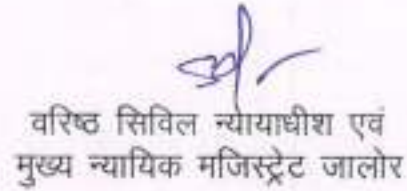 वरिष्ठ सिविल न्यायाधीश एवं
मुख्य न्यायिक मजिस्ट्रेट जालोर